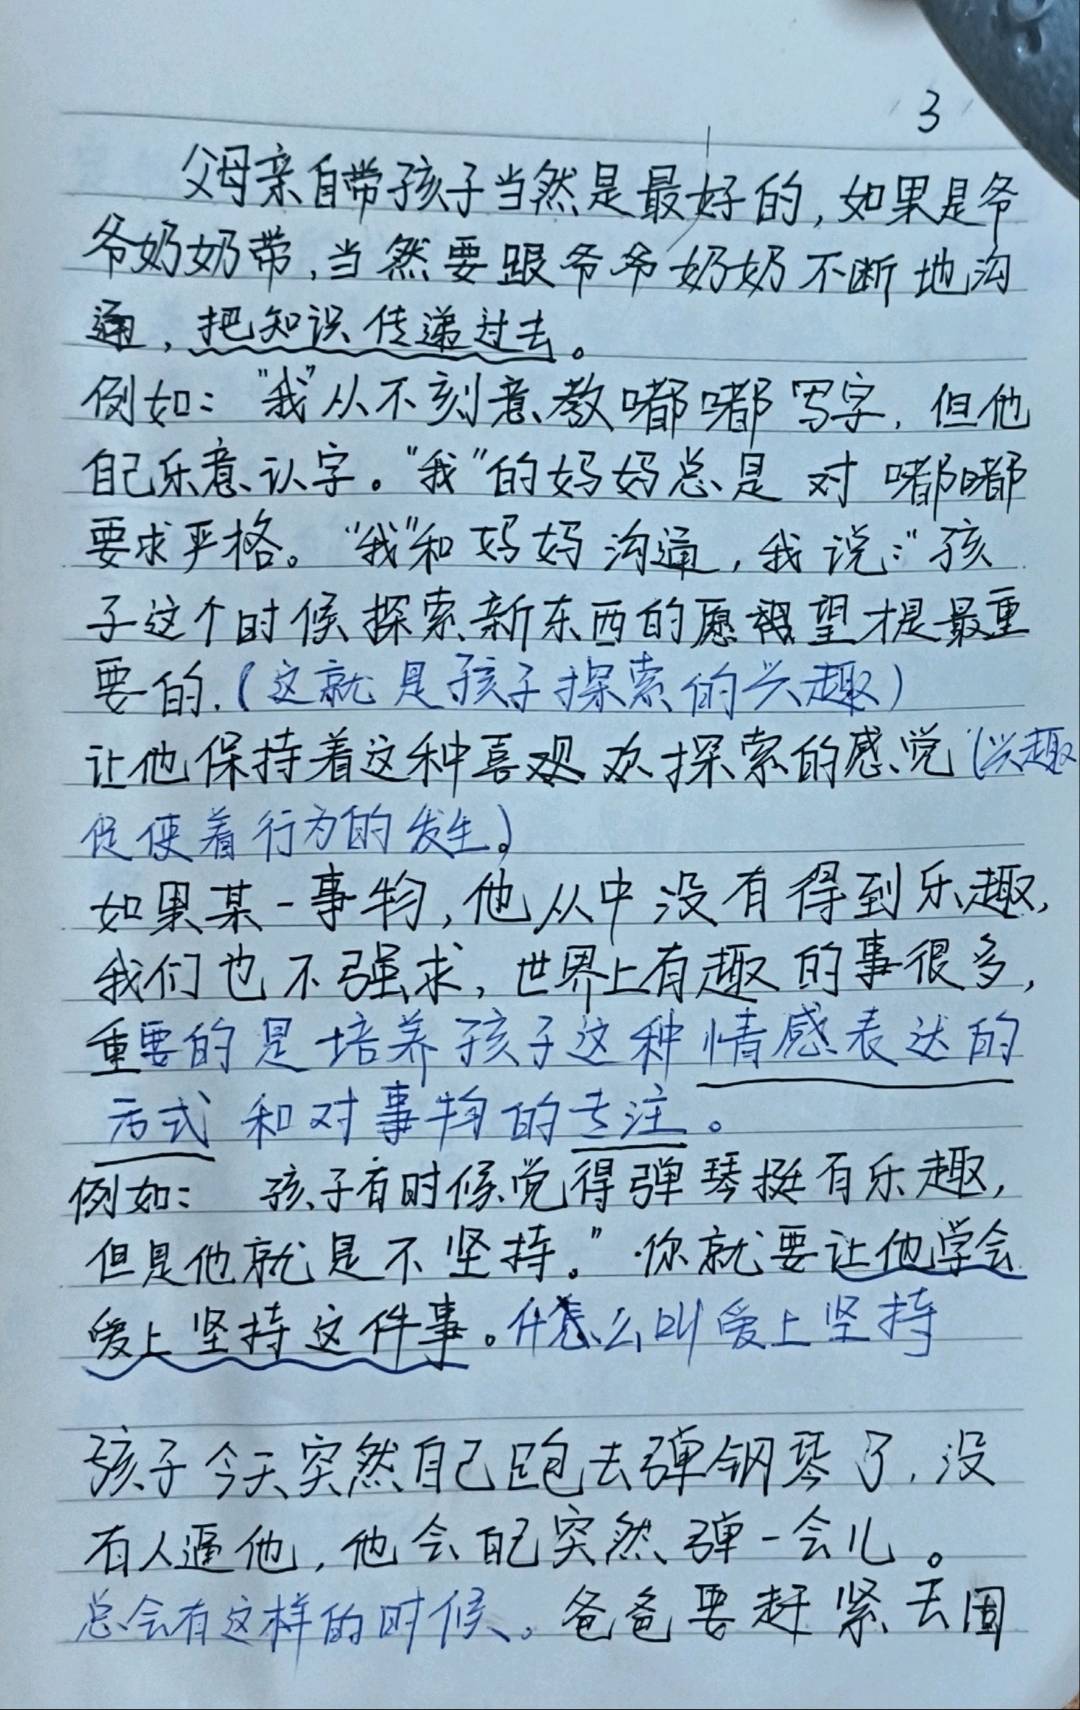 3
父母亲自带孩子当然是最好的,如果是爷
爷奶奶带,当然要跟爷爷奶奶不断地沟
通,把知识传递过去。
例如:“我”从不刻意教嘟嘟写字,但他
自己乐意认字。“我”的妈妈总是对嘟嘟
要求严格。“我”和妈妈沟通,我说:“孩
子这个时候探索新东西的愿望才是最重
要的.(这就是孩子探索的兴趣)
让他保持着这种喜欢探索的感觉(兴趣
促使着行为的发生。)
如果某一事物,他从中没有得到乐趣,
我们也不强求,世界上有趣的事很多,
重要的是培养孩子这种情感表达的
方式和对事物的专注。
例如: 孩子有时候觉得弹琴挺有乐趣,
但是他就是不坚持。”你就要让他学会
爱上坚持这件事。怎么叫爱上坚持
孩子今天突然自己跑去弹钢琴了,没
有人逼他,他会自己突然弹一会儿。
总会有这样的时候。爸爸要赶紧去固